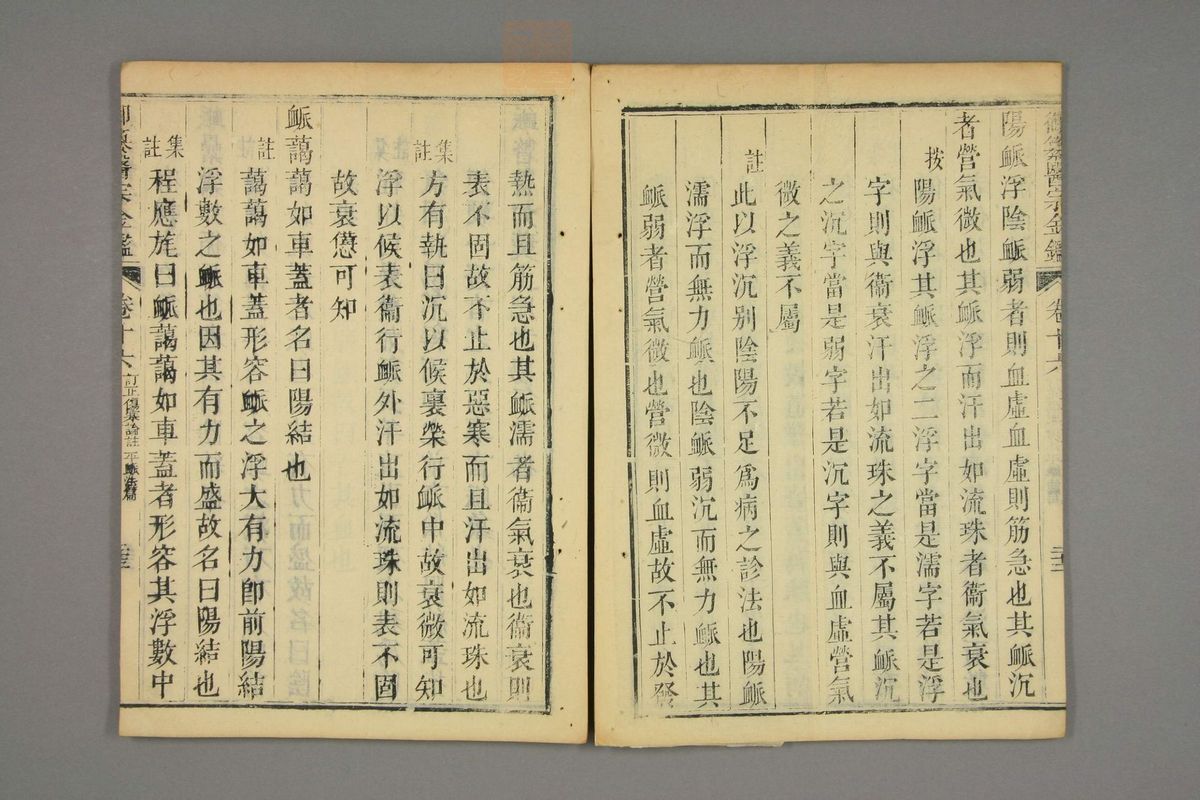 御纂醫宗金鑑 卷十六
陽脈浮陰脈弱者則血虛血虛則筋急也其脈沉
者營氣微也其脈浮而汗出如流珠者衞氣衰也
按 陽脈浮其脈浮之二浮字當是濡字若是浮
字則與衞衰汗出如流珠之義不屬其脈沉
之沉字當是弱字若是沉字則與血虛營氣
微之義不屬
註 此以浮沉别陰陽不足爲病之診法也陽脈
濡浮而無力脈也陰脈弱沉而無力脈也其
脈弱者營氣微也營微則血虛故不止於發
熱而且筋急也其脈濡者衞氣衰也衞衰則
表不固故不止於惡寒而且汗出如流珠也
集註 方有執曰沉以候裏榮行脈中故衰微可知
浮以候表衞行脈外汗出如流珠則表不固
故衰憊可知
脈藹藹如車蓋者名曰陽結也
註 藹藹如車蓋形容脈之浮大有力卽前陽結
浮數之脈也因其有力而盛故名曰陽結也
集註 程應旄曰脈藹藹如車蓋者形容其浮數中
御纂醫宗金鑑 卷十六 訂正傷寒論註 平脈法篇